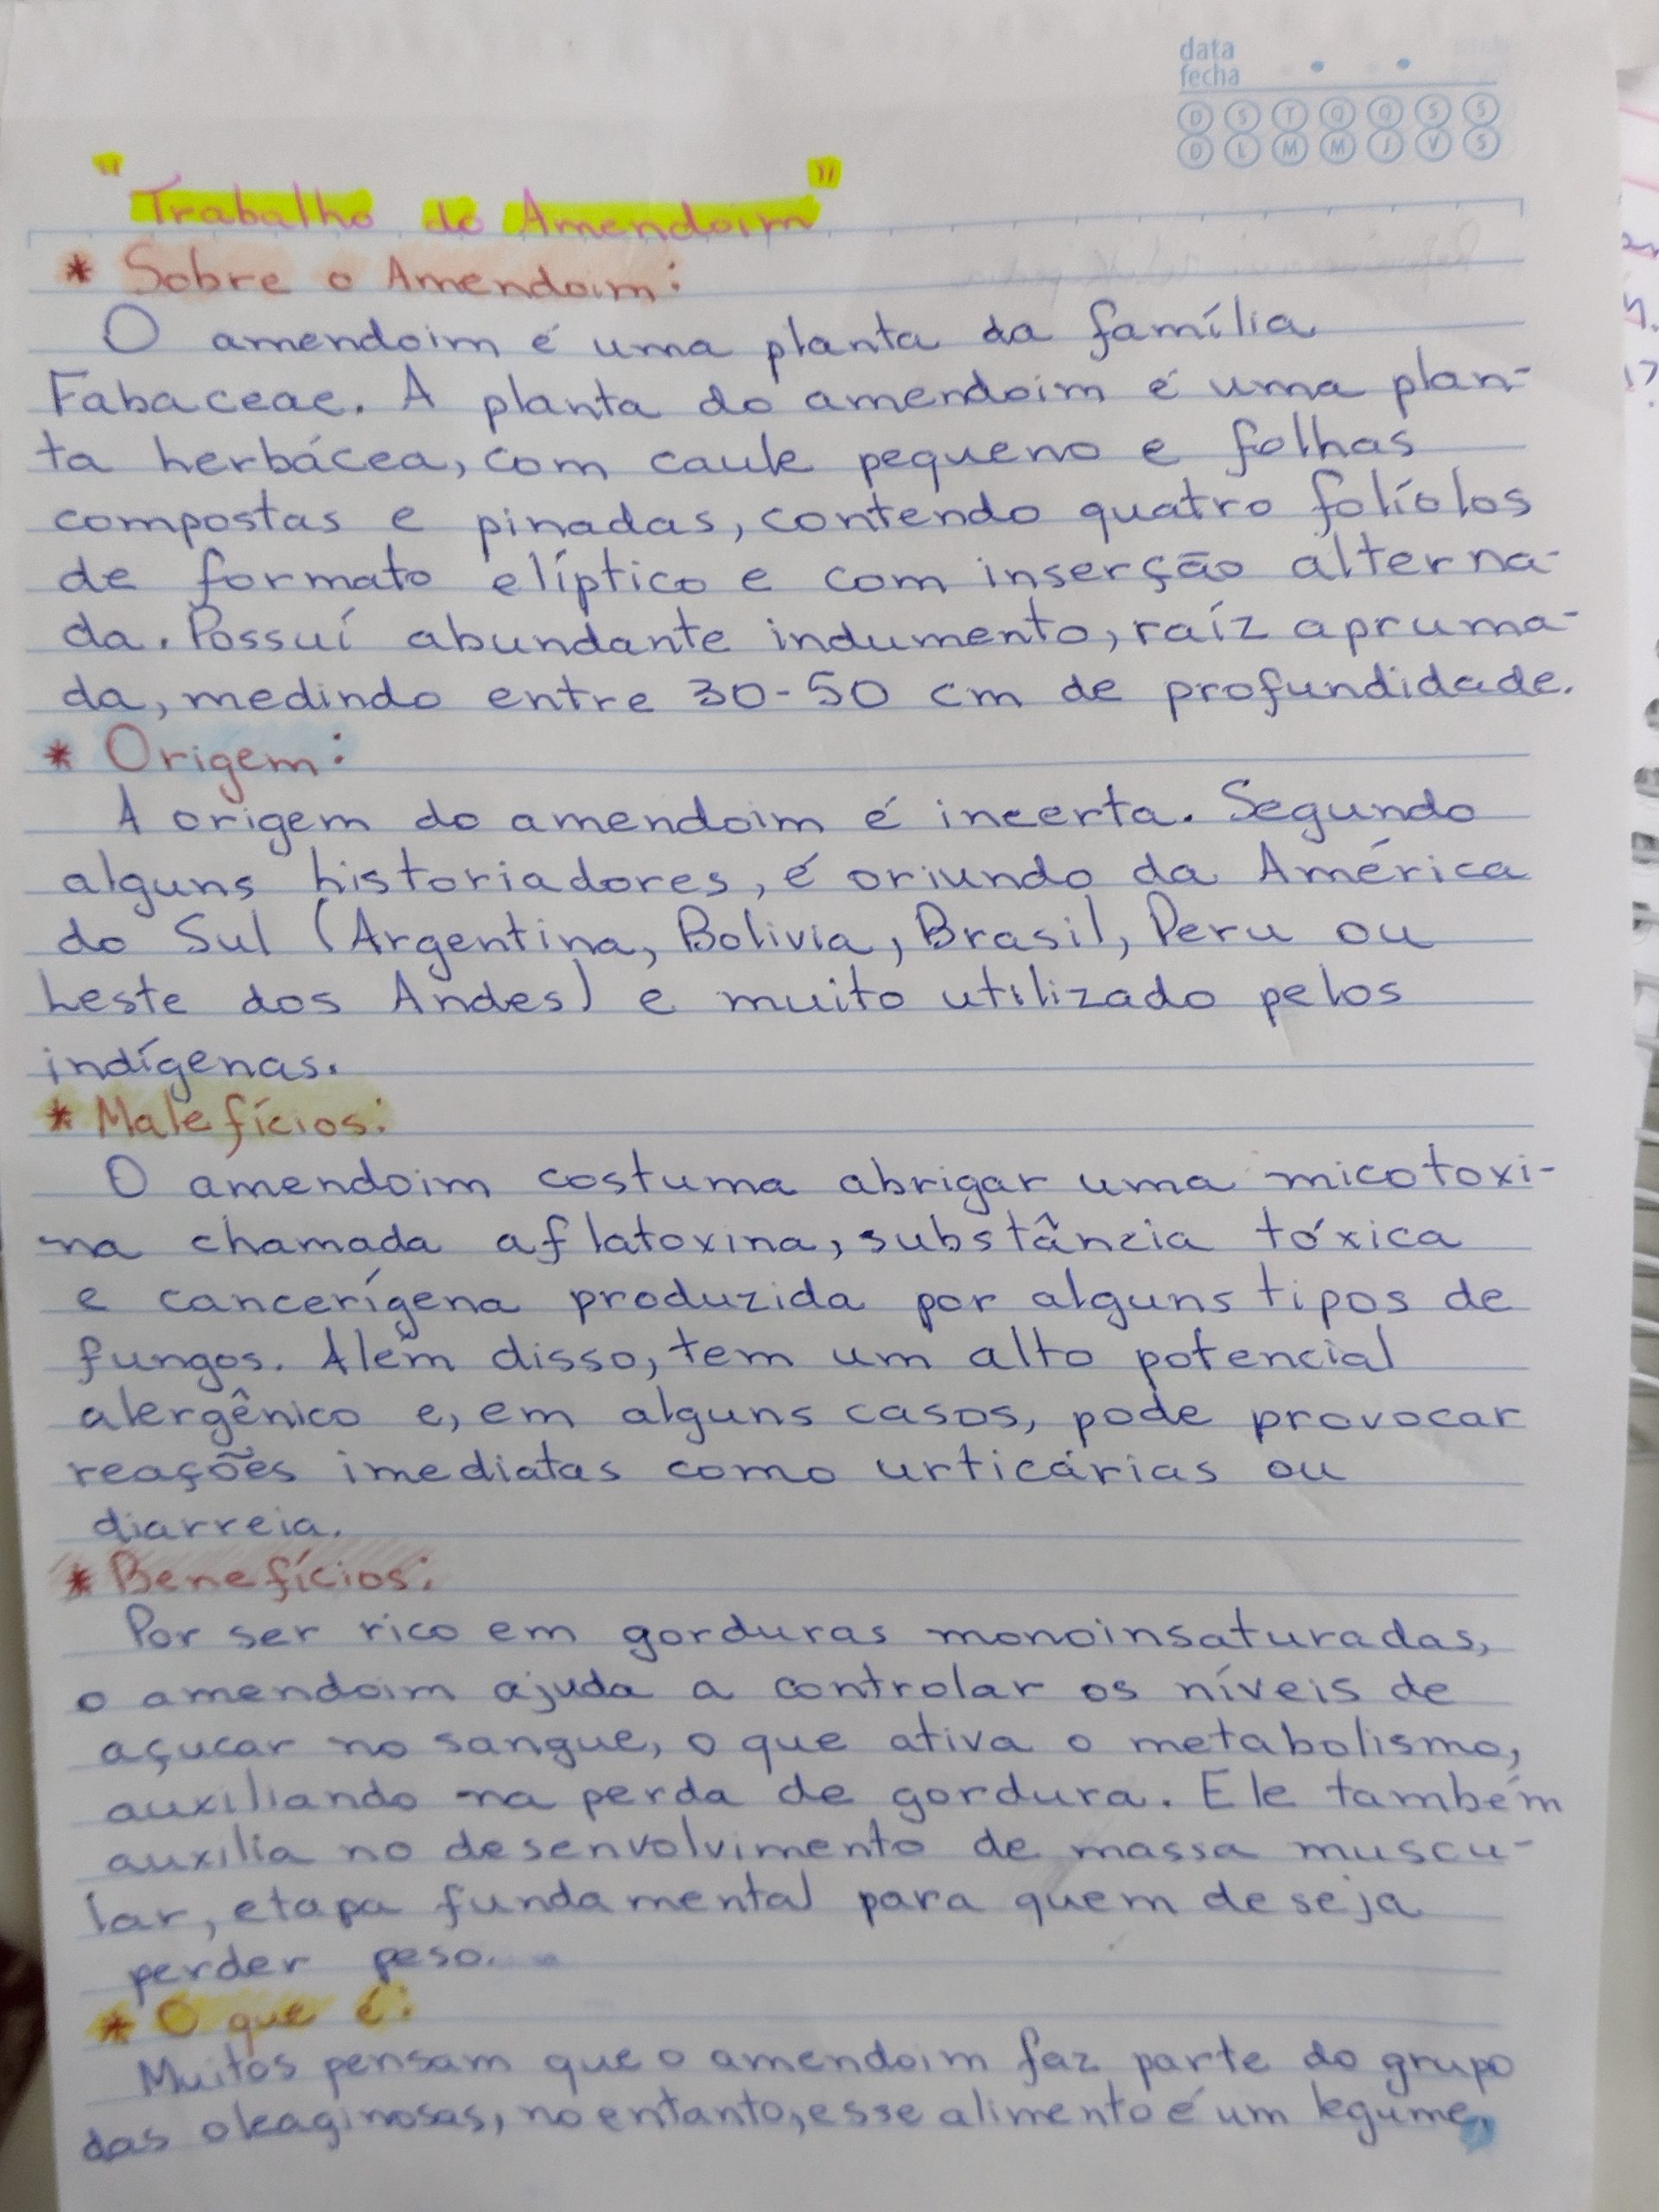 data
fecha
D S T Q Q S S
D L M M J V S
"Trabalho do Amendoim"
* Sobre o Amendoim:
O amendoim é uma planta da família
Fabaceae. A planta do amendoim é uma plan-
ta herbácea, com caule pequeno e folhas
compostas e pinadas, contendo quatro folíolos
de formato elíptico e com inserção alterna-
da. Possuí abundante indumento, raíz apruma-
da, medindo entre 30-50 cm de profundidade.
* Origem:
A origem do amendoim é incerta. Segundo
alguns historiadores, é oriundo da América
do Sul (Argentina, Bolivia, Brasil, Peru ou
Leste dos Andes) e muito utilizado pelos
indígenas.
* Malefícios:
O amendoim costuma abrigar uma micotoxi-
na chamada aflatoxina, substância tóxica
e cancerígena produzida por alguns tipos de
fungos. Além disso, tem um alto potencial
alergênico e, em alguns casos, pode provocar
reações imediatas como urticárias ou
diarreia.
* Benefícios:
Por ser rico em gorduras monoinsaturadas,
o amendoim ajuda a controlar os níveis de
açucar no sangue, o que ativa o metabolismo,
auxiliando na perda de gordura. Ele também
auxilia no desenvolvimento de massa muscu-
lar, etapa fundamental para quem deseja
perder peso.
* O que é:
Muitos pensam que o amendoim faz parte do grupo
das oleaginosas, no entanto, esse alimento é um legume.